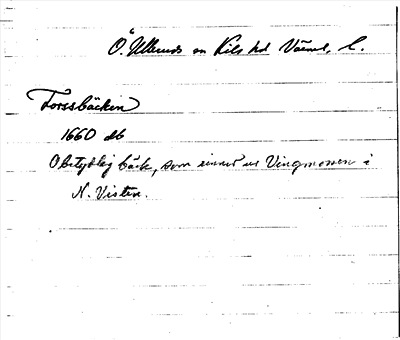 Ö. Ullerud sn Kils hd Värml. l.
Forssbäcken
1660 db
Obetydlig bäck, som rinner ur Vingmossen i
N. Visten.